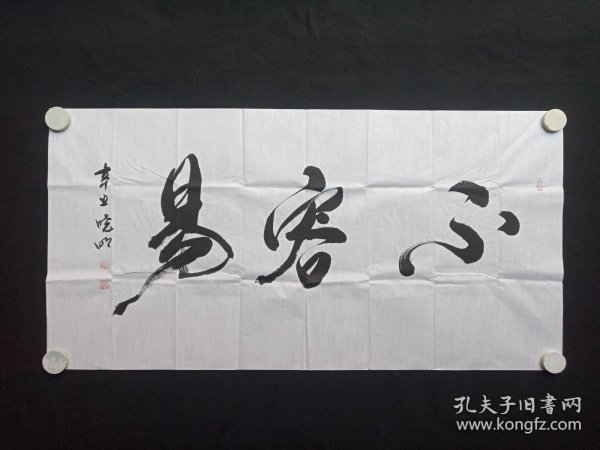 不容易
辛丑晓明
孔夫子旧書网
www.kongfz.com